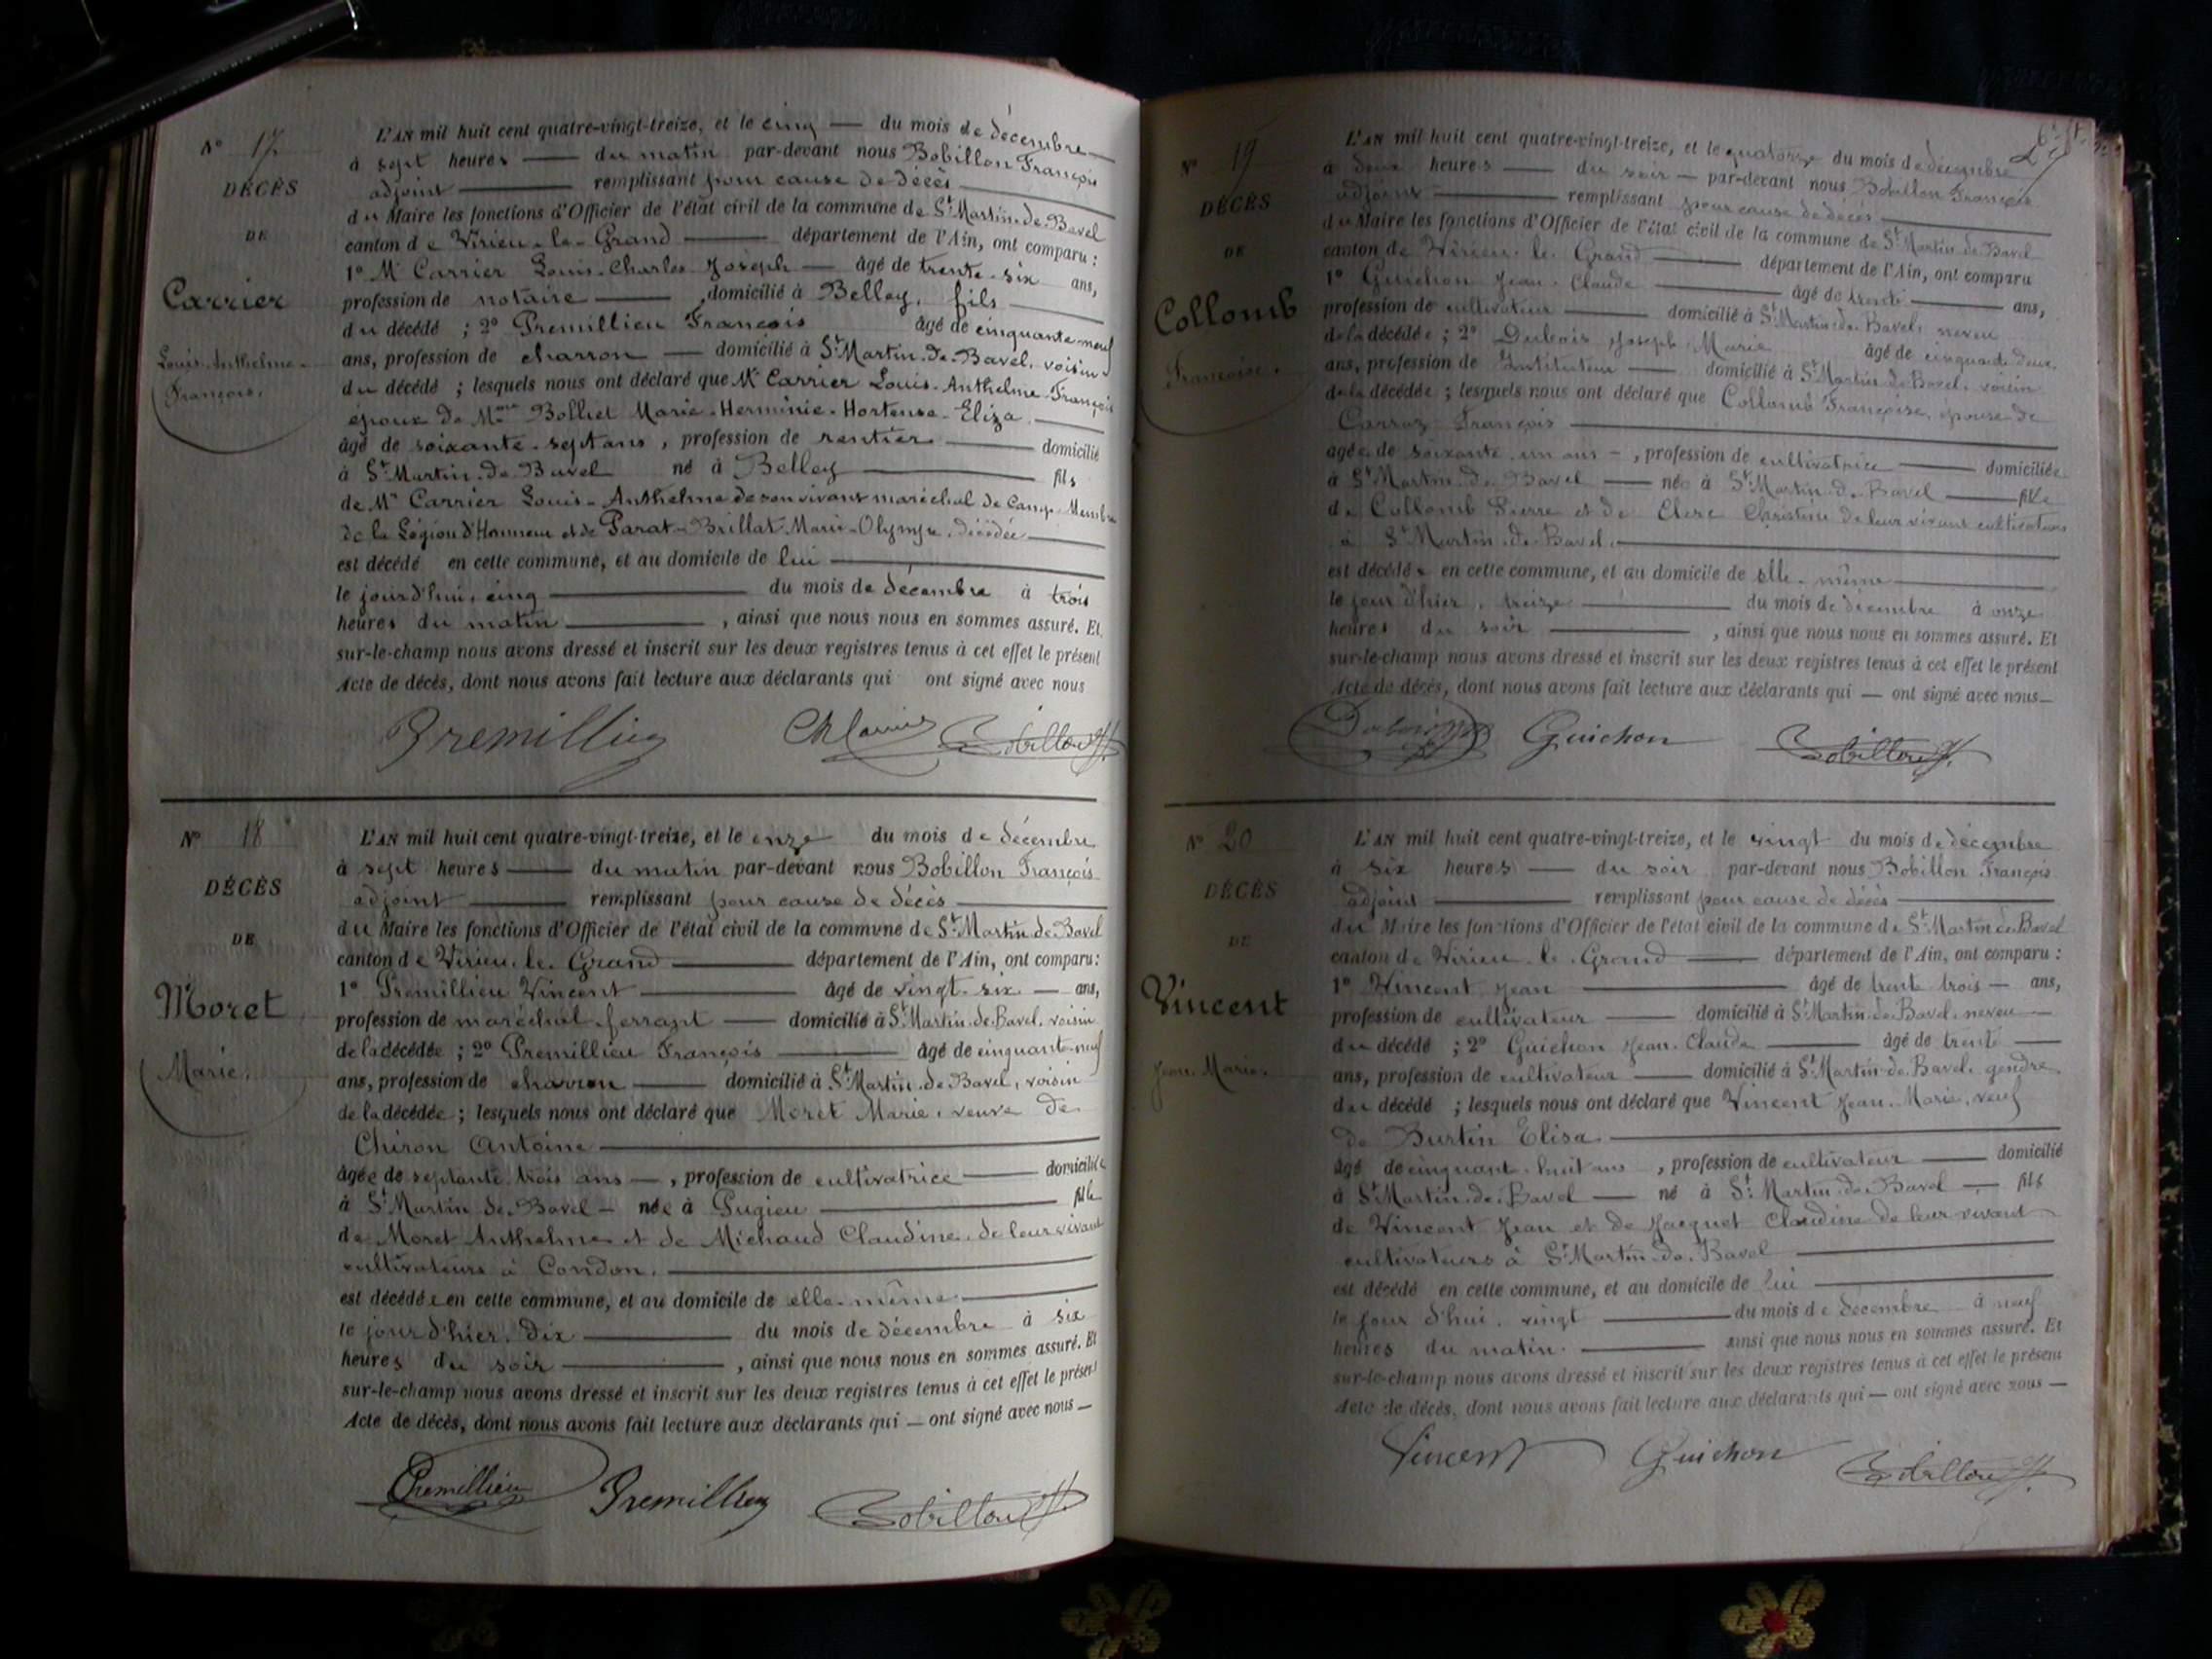 N° 17
DÉCÈS
DE
Carrier
Louis-Anthelme-
François.
L'AN mil huit cent quatre-vingt-treize, et le cinq — du mois de décembre
à sept heures — du matin par-devant nous Bobillon François
adjoint — remplissant pour cause de décès
du Maire les fonctions d'Officier de l'état civil de la commune de St Martin-de-Bavel
canton de Virieu-le-Grand — département de l'Ain, ont comparu :
1° Mr Carrier Louis-Charles Joseph — âgé de trente-six ans,
profession de notaire — domicilié à Belley, fils
du décédé ; 2° Premillieu François âgé de cinquante-neuf
ans, profession de charron — domicilié à St Martin-de-Bavel, voisin
du décédé ; lesquels nous ont déclaré que Mr Carrier Louis-Anthelme-François
époux de Mme Bolliet Marie-Herminie-Hortense-Eliza.
âgé de soixante-sept ans, profession de rentier — domicilié
à St Martin-de-Bavel né à Belley — fils
de Mr Carrier Louis-Anthelme de son vivant maréchal de Camp Membre
de la Légion d'Honneur et de Parat-Brillat Marie-Olympe, décédée
est décédé en cette commune, et au domicile de lui
le jourd'hui, cinq — du mois de décembre à trois
heures du matin — , ainsi que nous nous en sommes assuré. Et
sur-le-champ nous avons dressé et inscrit sur les deux registres tenus à cet effet le présent
Acte de décès, dont nous avons fait lecture aux déclarants qui ont signé avec nous
Premillieu Bobillon
N° 18
DÉCÈS
DE
Moret
Marie.
L'AN mil huit cent quatre-vingt-treize, et le onze du mois de décembre
à sept heures — du matin par-devant nous Bobillon François
adjoint — remplissant pour cause de décès
du Maire les fonctions d'Officier de l'état civil de la commune de St Martin de Bavel
canton de Virieu-le-Grand — département de l'Ain, ont comparu :
1° Premillieu Vincent — âgé de vingt-six — ans,
profession de maréchal-ferrant — domicilié à St Martin-de-Bavel, voisin
de la décédée ; 2° Premillieu François — âgé de cinquante-neuf
ans, profession de charron — domicilié à St Martin-de-Bavel, voisin
de la décédée ; lesquels nous ont déclaré que Moret Marie, veuve de
Chiron Antoine
âgée de septante-trois ans — , profession de cultivatrice — domiciliée
à St Martin de Bavel — née à Pugieu — fille
de Moret Anthelme et de Michaud Claudine, de leur vivant
cultivateurs à Condon.
est décédée en cette commune, et au domicile de elle-même
le jour d'hier, dix — du mois de décembre à six
heures du soir — , ainsi que nous nous en sommes assuré. Et
sur-le-champ nous avons dressé et inscrit sur les deux registres tenus à cet effet le présent
Acte de décès, dont nous avons fait lecture aux déclarants qui — ont signé avec nous —
Premillieu Premillieu Bobillon
N° 19
DÉCÈS
DE
Collomb
Françoise.
L'AN mil huit cent quatre-vingt-treize, et le quatorze du mois de décembre
à deux heures — du soir — par-devant nous Bobillon François
adjoint — remplissant pour cause de décès
du Maire les fonctions d'Officier de l'état civil de la commune de St Martin de Bavel
canton de Virieu-le-Grand — département de l'Ain, ont comparu
1° Guichon Jean-Claude — âgé de trente — ans,
profession de cultivateur — domicilié à St Martin-de-Bavel, neveu
de la décédée ; 2° Dubois Joseph Marie âgé de cinquante deux
ans, profession de Instituteur — domicilié à St Martin-de-Bavel, voisin
de la décédée ; lesquels nous ont déclaré que Collomb Françoise, épouse de
Carraz François
âgée de soixante-un ans — , profession de cultivatrice — domiciliée
à St Martin-de-Bavel — née à St Martin-de-Bavel — fille
de Collomb Pierre et de Clerc Christine de leur vivant cultivateurs
à St Martin-de-Bavel.
est décédée en cette commune, et au domicile de elle-même
le jour d'hier, treize — du mois de décembre à onze
heures du soir — , ainsi que nous nous en sommes assuré. Et
sur-le-champ nous avons dressé et inscrit sur les deux registres tenus à cet effet le présent
Acte de décès, dont nous avons fait lecture aux déclarants qui — ont signé avec nous —
Dubois Guichon Bobillon
N° 20
DÉCÈS
DE
Vincent
Jean-Marie.
L'AN mil huit cent quatre-vingt-treize, et le vingt du mois de décembre
à six heures — du soir par-devant nous Bobillon François
adjoint — remplissant pour cause de décès
du Maire les fonctions d'Officier de l'état civil de la commune de St Martin de Bavel
canton de Virieu-le-Grand — département de l'Ain, ont comparu :
1° Vincent Jean — âgé de trente trois — ans,
profession de cultivateur — domicilié à St Martin-de-Bavel, neveu —
du décédé ; 2° Guichon Jean-Claude — âgé de trente —
ans, profession de cultivateur — domicilié à St Martin-de-Bavel, gendre
du décédé ; lesquels nous ont déclaré que Vincent Jean-Marie, veuf
de Burtin Elisa.
âgé de cinquante-huit ans , profession de cultivateur — domicilié
à St Martin-de-Bavel — né à St Martin-de-Bavel — fils
de Vincent Jean et de Jacquet Claudine de leur vivant
cultivateurs à St Martin-de-Bavel
est décédé en cette commune, et au domicile de lui
le jour d'hui, vingt — du mois de décembre à neuf
heures du matin. — ainsi que nous nous en sommes assuré. Et
sur-le-champ nous avons dressé et inscrit sur les deux registres tenus à cet effet le présent
Acte de décès, dont nous avons fait lecture aux déclarants qui — ont signé avec nous —
Vincent Guichon Bobillon